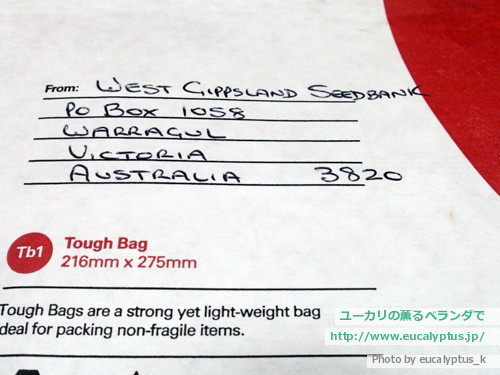 From: WEST GIPPSLAND SEEDBANK
PO BOX 1058
WARRAGUL
VICTORIA
AUSTRALIA 3820
Tb1
Tough Bag
216mm x 275mm
Tough Bags are a strong yet light-weight bag
deal for packing non-fragile items.
ユーカリの薫るベランダで
http://www.eucalyptus.jp/
Photo by eucalyptus_k